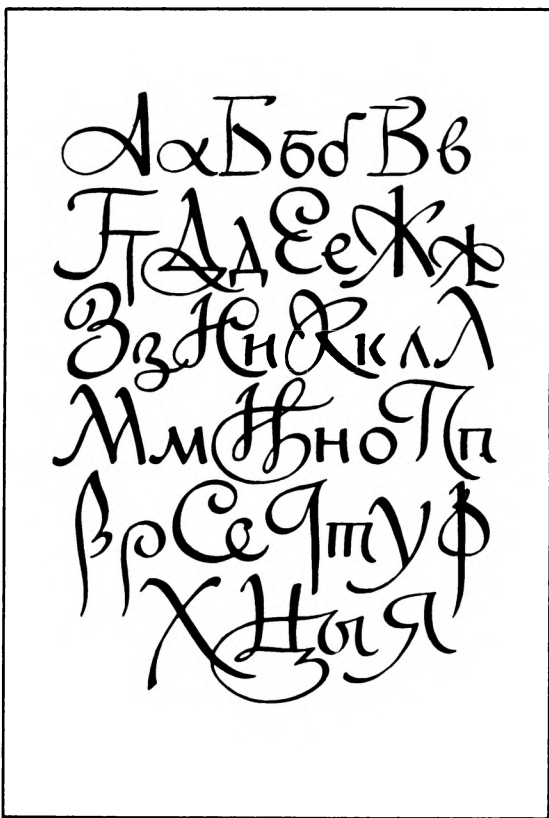 АаБббВв
ГгДдЕеЖж
ЗзИиКклЛ
МмНноПп
РрСсТтуф
ХЦыЯ